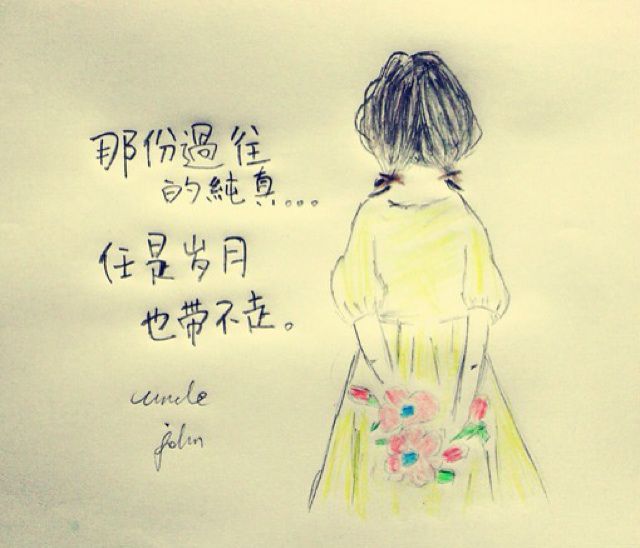 那份過往
的純真...
任是岁月
也带不走。
uncle
john